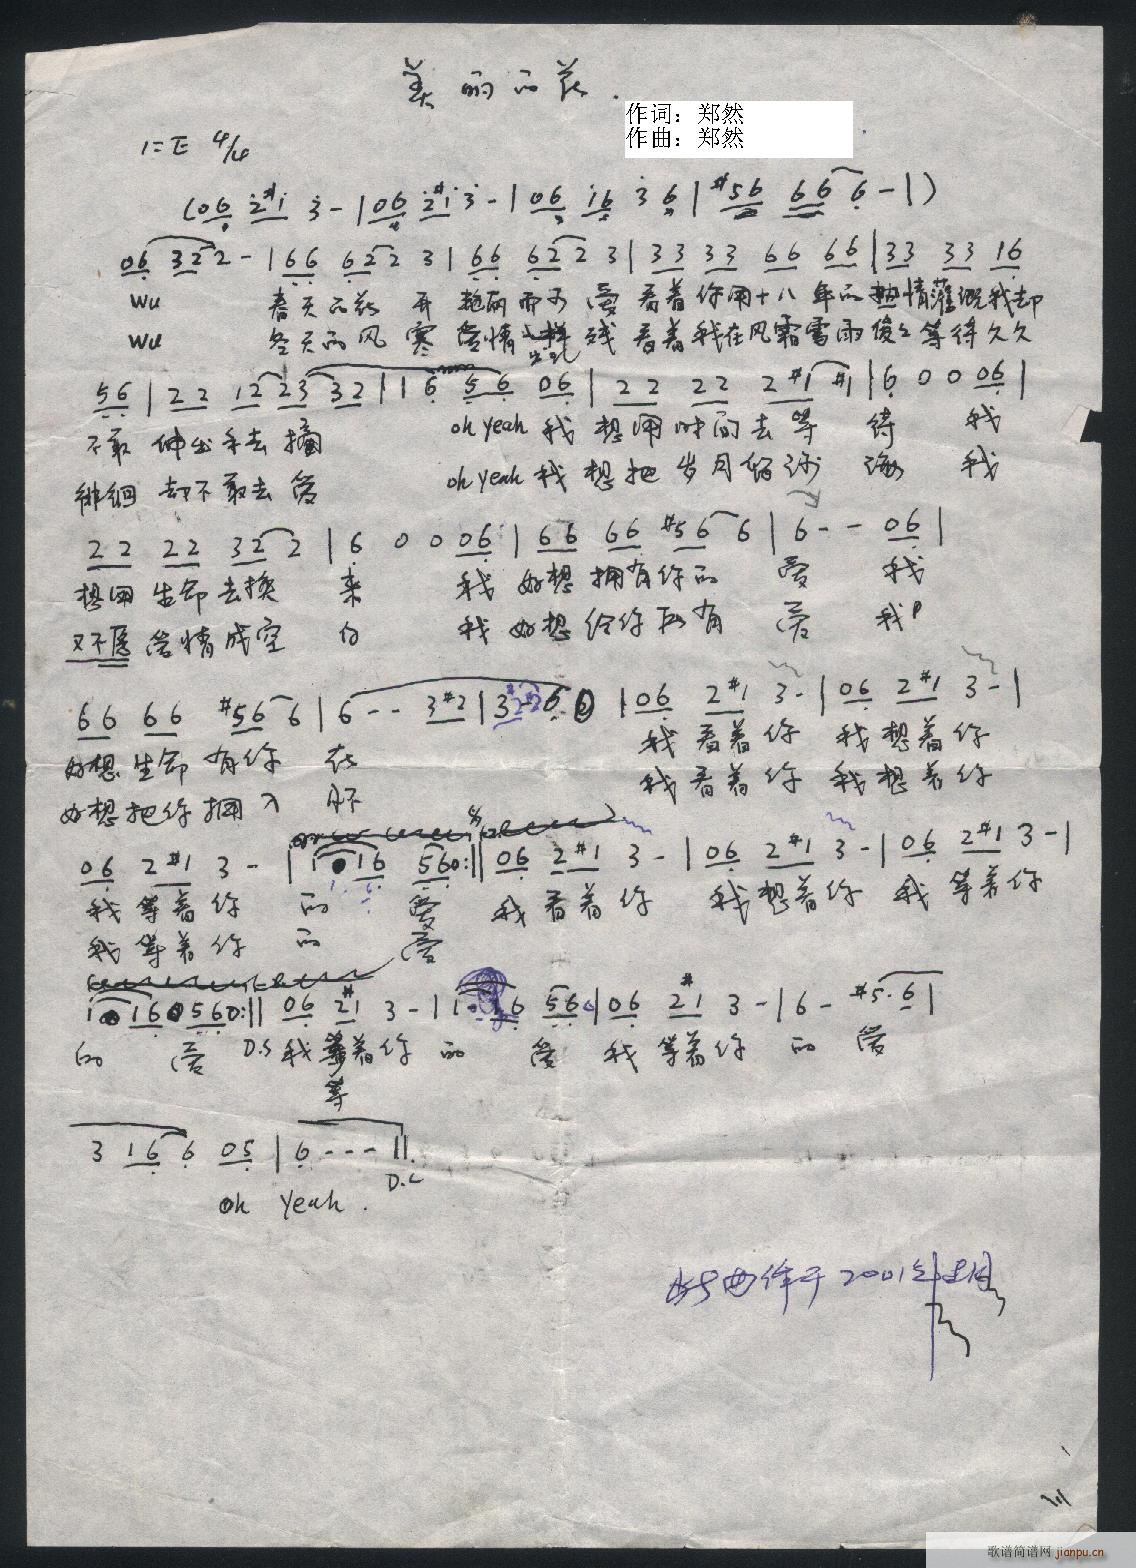 美丽的花.
作词：郑然
作曲：郑然
1=E 4/4
(06 2#1 3 - | 06 2#1 3 - | 06 16 3 6 | #56 66 6 - |)
06 322 - | 66 622 3 | 66 622 3 | 33 33 66 66 | 33 33 16
Wu 春天的花 开 艳丽而可 爱 看着你用十八年的热情灌溉我却
Wu 冬天的风 寒 爱情 残 看着我在风霜雷雨傻傻等待久久
56 | 22 12 23 32 | 1 6 56 06 | 22 22 2#1 #1 | 6 0 0 06 |
不敢 伸出手去摘 oh yeah 我 想用时间去等 待 我
徘徊 却不敢去爱 oh yeah 我 想把岁月留给 我
22 22 32 2 | 6 0 0 06 | 66 66 #56 6 | 6 - - 06 |
想用生命去换 来 我 好想拥有你的 爱 我
又不愿爱情成空 白 我 好想给你所有 爱 我
66 66 #56 6 | 6 - - 3#2 | 3 6 0 | 06 2#1 3 - | 06 2#1 3 - |
好想生命有你 在 我看着你 我想着你
好想把你拥入 怀 我看着你 我想着你
06 2#1 3 - | 1 16 560 :|| 06 2#1 3 - | 06 2#1 3 - | 06 2#1 3 - |
我等着你 的 爱 我看着你 我想着你 我等着你
我等着你 的 爱
1 16 560 :|| 06 2#1 3 - | 1. 6 56 | 06 2#1 3 - | 6 - #5. 6 |
的 爱 D.S 我等着你 的 爱 我等着你 的 爱
等
3 16 6 05 | 6 - - - ||
D.C
oh yeah .
此曲作于2001年
歌谱简谱网 jianpu.cn